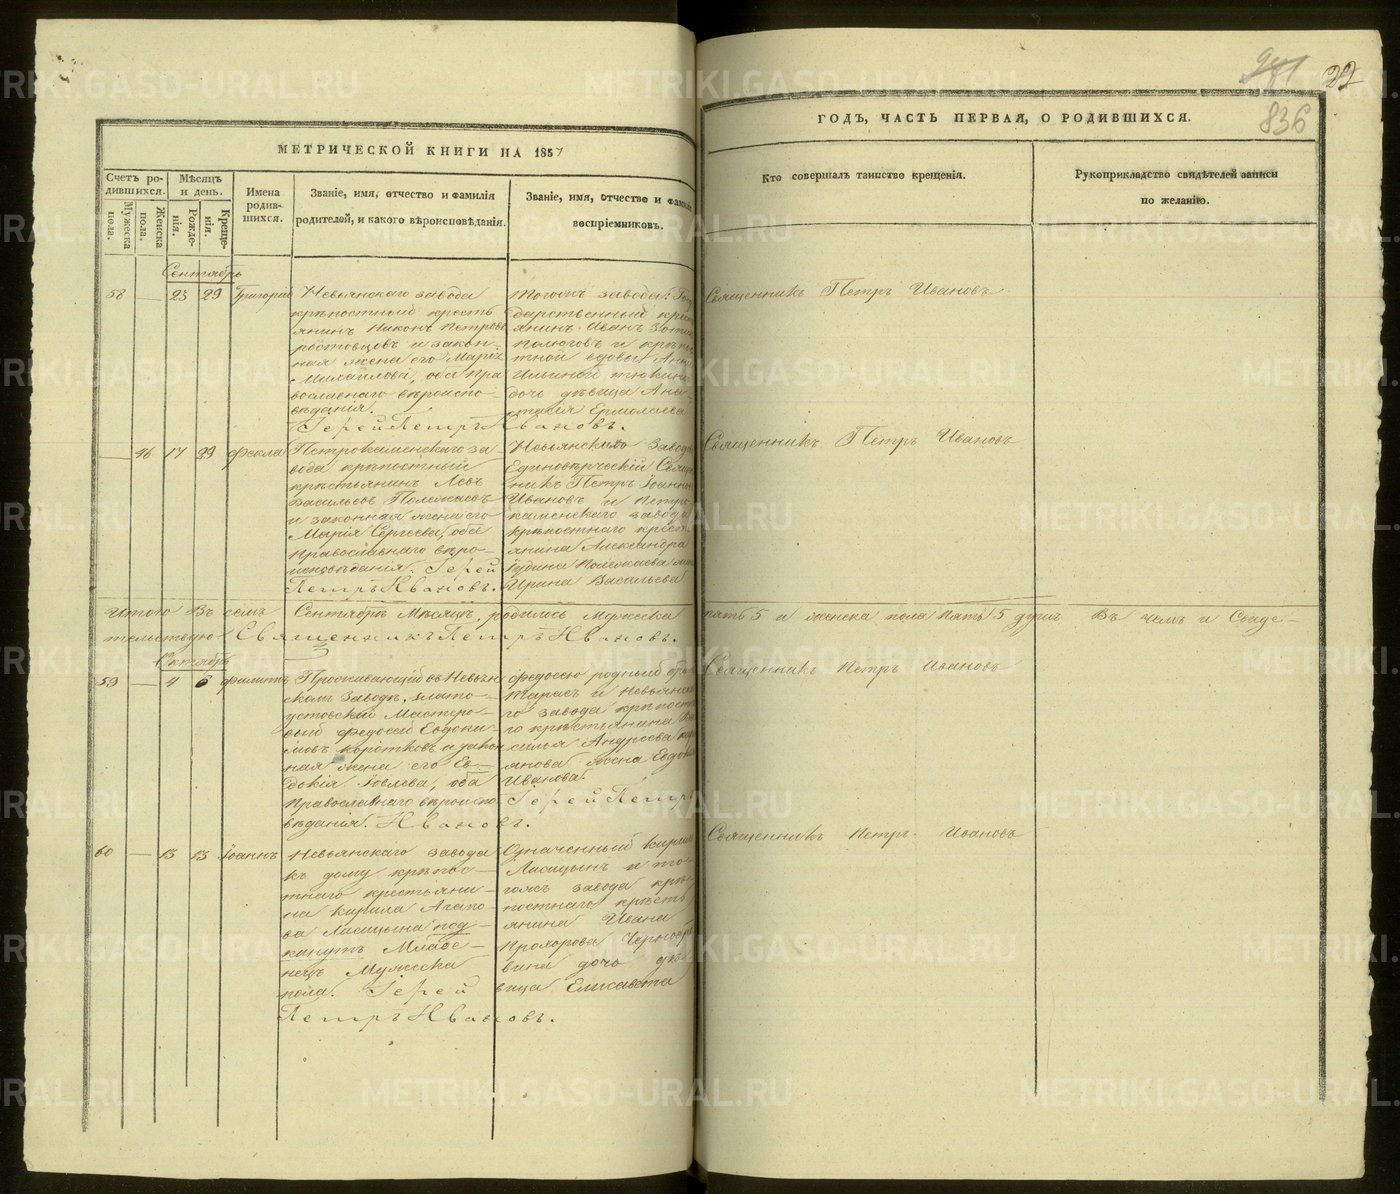 981 22
836
МЕТРИЧЕСКОЙ КНИГИ НА 1857
ГОДЪ, ЧАСТЬ ПЕРВАЯ, О РОДИВШИХСЯ.
Счетъ ро-
дившихся.
Мужеска
пола.
Женска
пола.
Мѣсяцъ
и день.
Рожде-
нія.
Креще-
нія.
Имена
родив-
шихся.
Званіе, имя, отчество и фамилія
родителей, и какого вѣроисповѣданія.
Званіе, имя, отчество и фамилія
воспріемниковъ.
Кто совершалъ таинство крещенія.
Рукоприкладство свидѣтелей записи
по желанію.
Сентябрь
58 — 23 29 Григорій
Невьянскаго завода
крѣпостный кресть
янинъ Никонъ Петровъ
ростовцовъ и закон-
ная жена его Марія
Михайлова, оба пра
вославнаго вѣроиспо-
вѣданія.
Іерей Петръ Ивановъ.
завода Госу
дарственный крест
янинъ Иванъ
и крѣпос
тной вдовы Анны
Ильиной
дочь дѣвица Анас
тасія Ермолаева
Священникъ Петръ Ивановъ
— 46 17 29 Фекла
Петрокаменскаго за-
вода крѣпостный
крѣстьянинъ Левъ
Васильевъ Полежаевъ
и законная жена его
Марія Сергѣева, оба
Православнаго вѣро-
исповѣданія. Іерей
Петръ Ивановъ.
Невьянскаго завода
Единовѣрческій Свящ
нникъ Петръ Іоанновъ
Ивановъ и Петро-
каменскаго завода
крѣпостнаго крест
янина Александра
Полежаева
Ирина Васильева
Священникъ Петръ Ивановъ
Итого въ семъ Сентябрѣ Мѣсяцѣ, родилось Мужеска пять 5 и женска пола пять 5 душъ Въ чемъ и Свиде-
тельствую Священникъ Петръ Ивановъ.
Октябрь
59 — 4 6 Филиппъ
Проживающій въ Невьян
скомъ Заводѣ, злато-
устовскій Мастеро-
вый Федосей Евдоки-
мовъ коротковъ и закон
ная жена его Ев-
докія Іовлева, оба
Православнаго вѣроиспо
вѣданія. Ивановъ.
Федосею родный братъ
Тарасъ и Невьянска
го завода крѣпостна
го крѣстьянина Ва
силья Андреева
янова жена Евдокія
Иванова.
Іерей Петръ
Священникъ Петръ Ивановъ
60 — 13 13 Іоаннъ
Невьянскаго завода
къ дому крѣпос-
тнаго крестьяни-
на кирила Агапо-
ва Лисицына под-
кинутъ Младе-
нецъ Мужеска
пола. Іерей
Петръ Ивановъ.
Означенный кирилъ
Лисицынъ и то-
гожъ завода крѣ-
постнаго крѣсть
янина Ивана
Прохорова
вина дочь дѣ-
вица Елисавета
Священникъ Петръ Ивановъ
METRIKI.GASO-URAL.RU